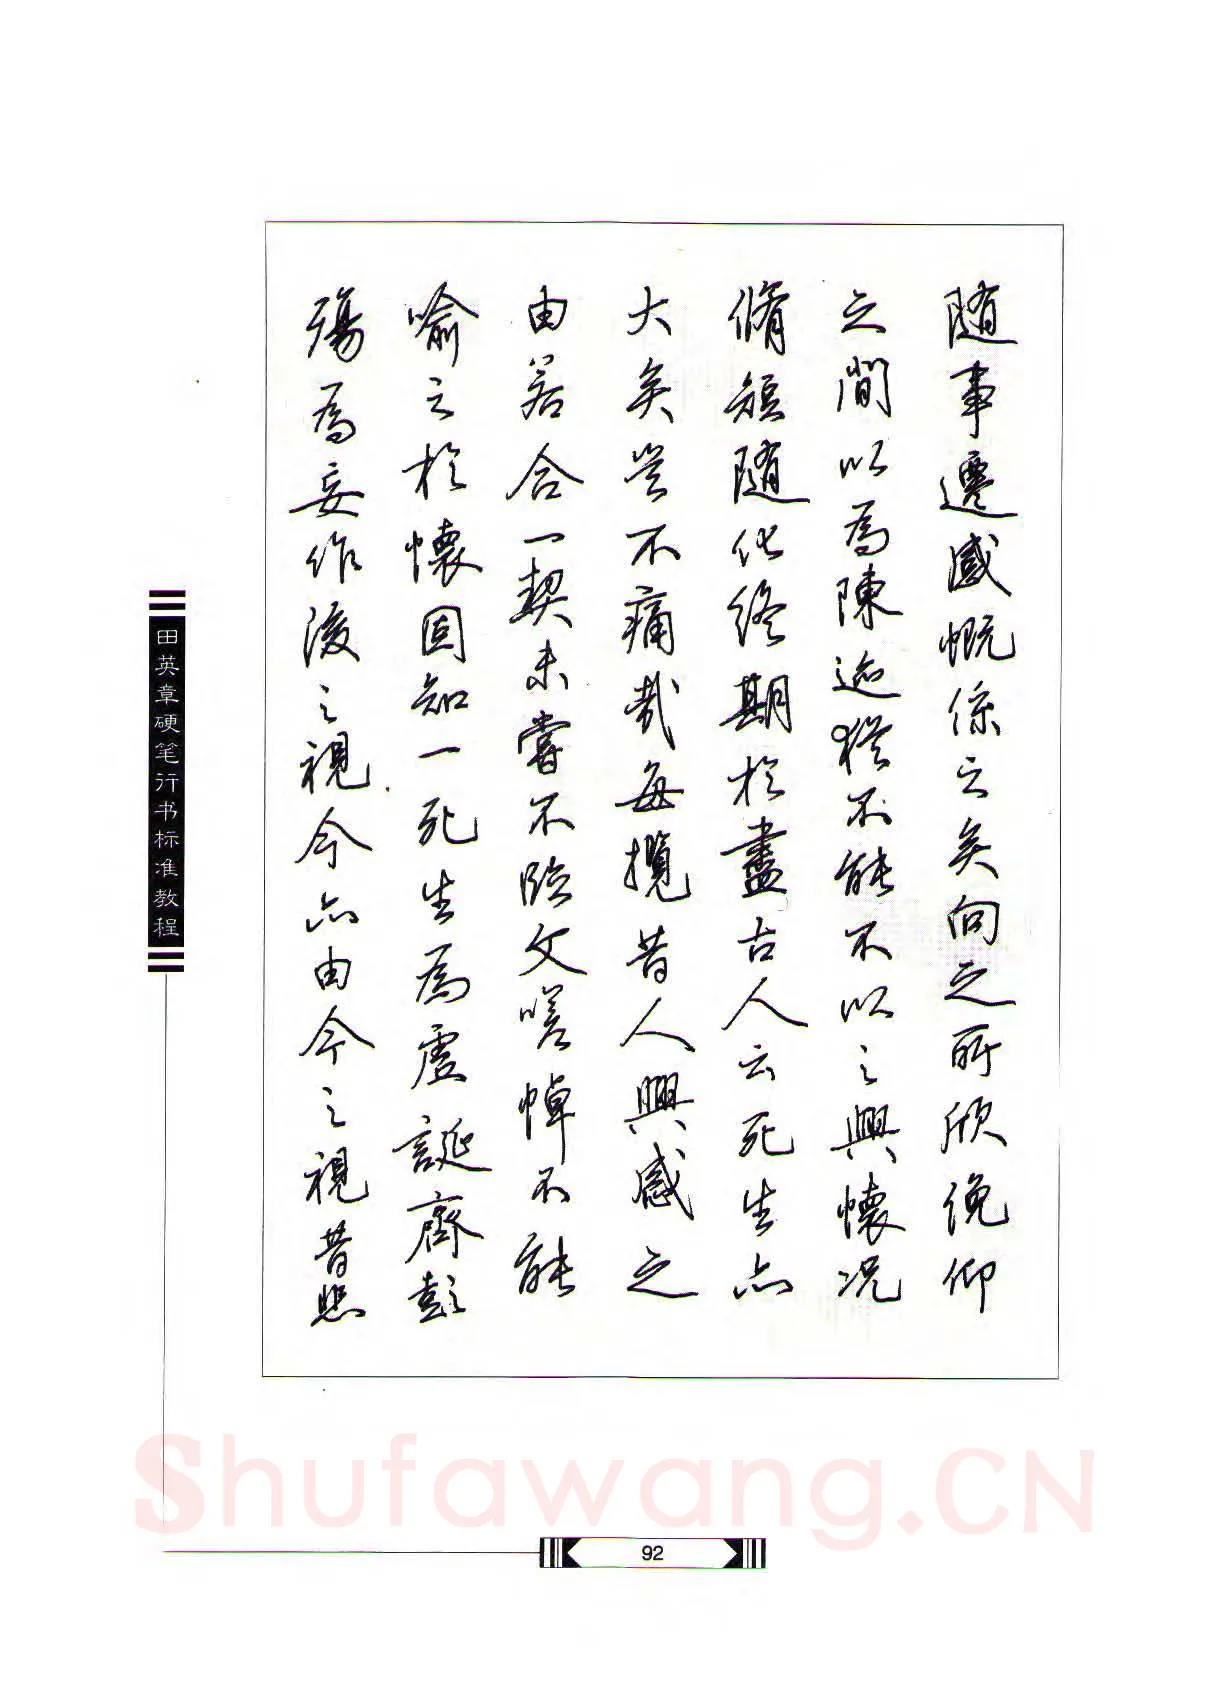 随事遷感慨係之矣向之所欣俛仰
之間以為陳迹猶不能不以之興懷况
脩短随化終期於盡古人云死生亦
大矣豈不痛哉每攬昔人興感之
由若合一契未嘗不臨文嗟悼不能
喻之於懷固知一死生為虛誕齊彭
殤為妄作後之視今亦由今之視昔悲
田英章硬笔行书标准教程
Shufawang.CN
92